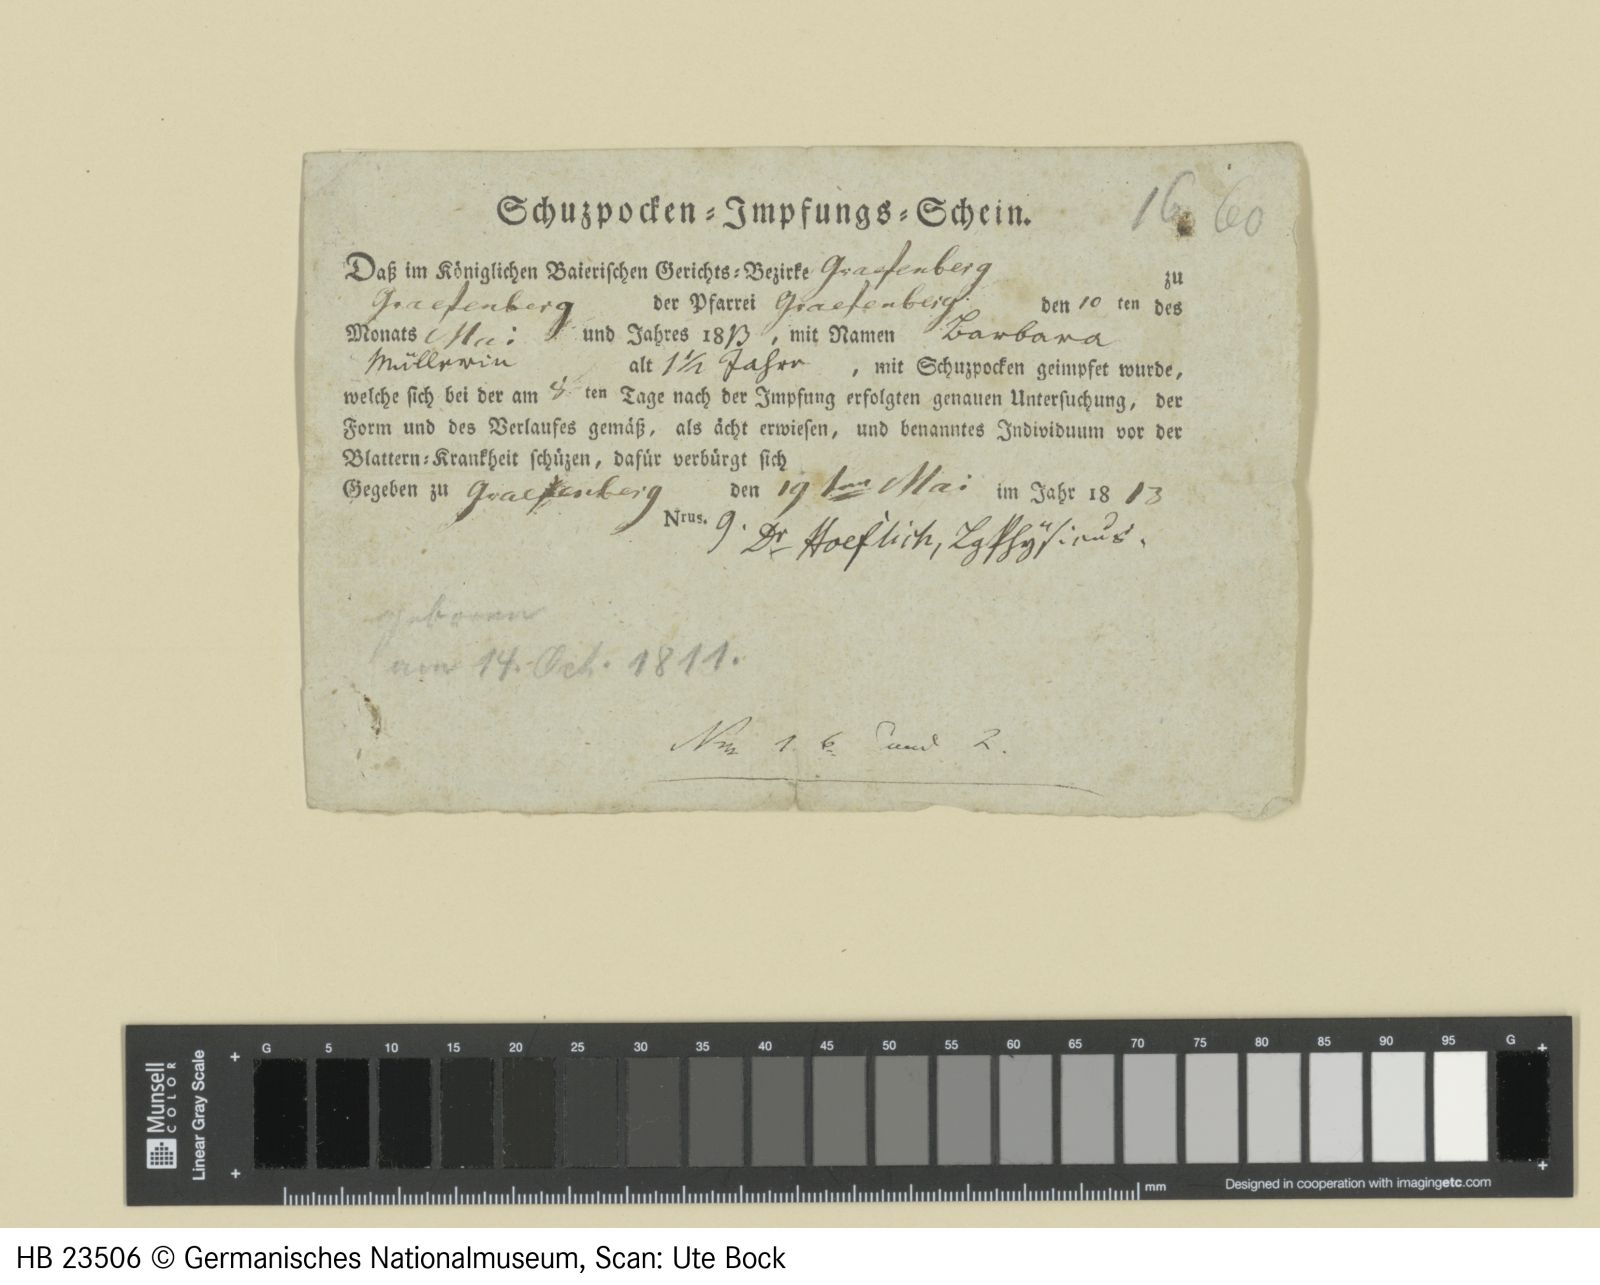 Schuzpocken-Impfungs-Schein.
16 60
Daß im Königlichen Baierischen Gerichts-Bezirke Graefenberg zu
Graefenberg der Pfarrei Graefenberg den 10 ten des
Monats Mai und Jahres 1813, mit Namen Barbara
Müllerin alt 1 1/2 Jahr, mit Schuzpocken geimpfet wurde,
welche sich bei der am 8 ten Tage nach der Impfung erfolgten genauen Untersuchung, der
Form und des Verlaufes gemäß, als ächt erwiesen, und benanntes Individuum vor der
Blattern-Krankheit schüzen, dafür verbürgt sich
Gegeben zu Graefenberg den 19ten Mai im Jahr 1813
Nrus. 9. Dr Hoeflich, LgPhÿsicus.
geboren
am 14. Oct. 1811.
1. 6 und 2.
Munsell
COLOR
Linear Gray Scale
G 5 10 15 20 25 30 35 40 45 50 55 60 65 70 75 80 85 90 95 G
mm
Designed in cooperation with imagingetc.com
HB 23506 © Germanisches Nationalmuseum, Scan: Ute Bock